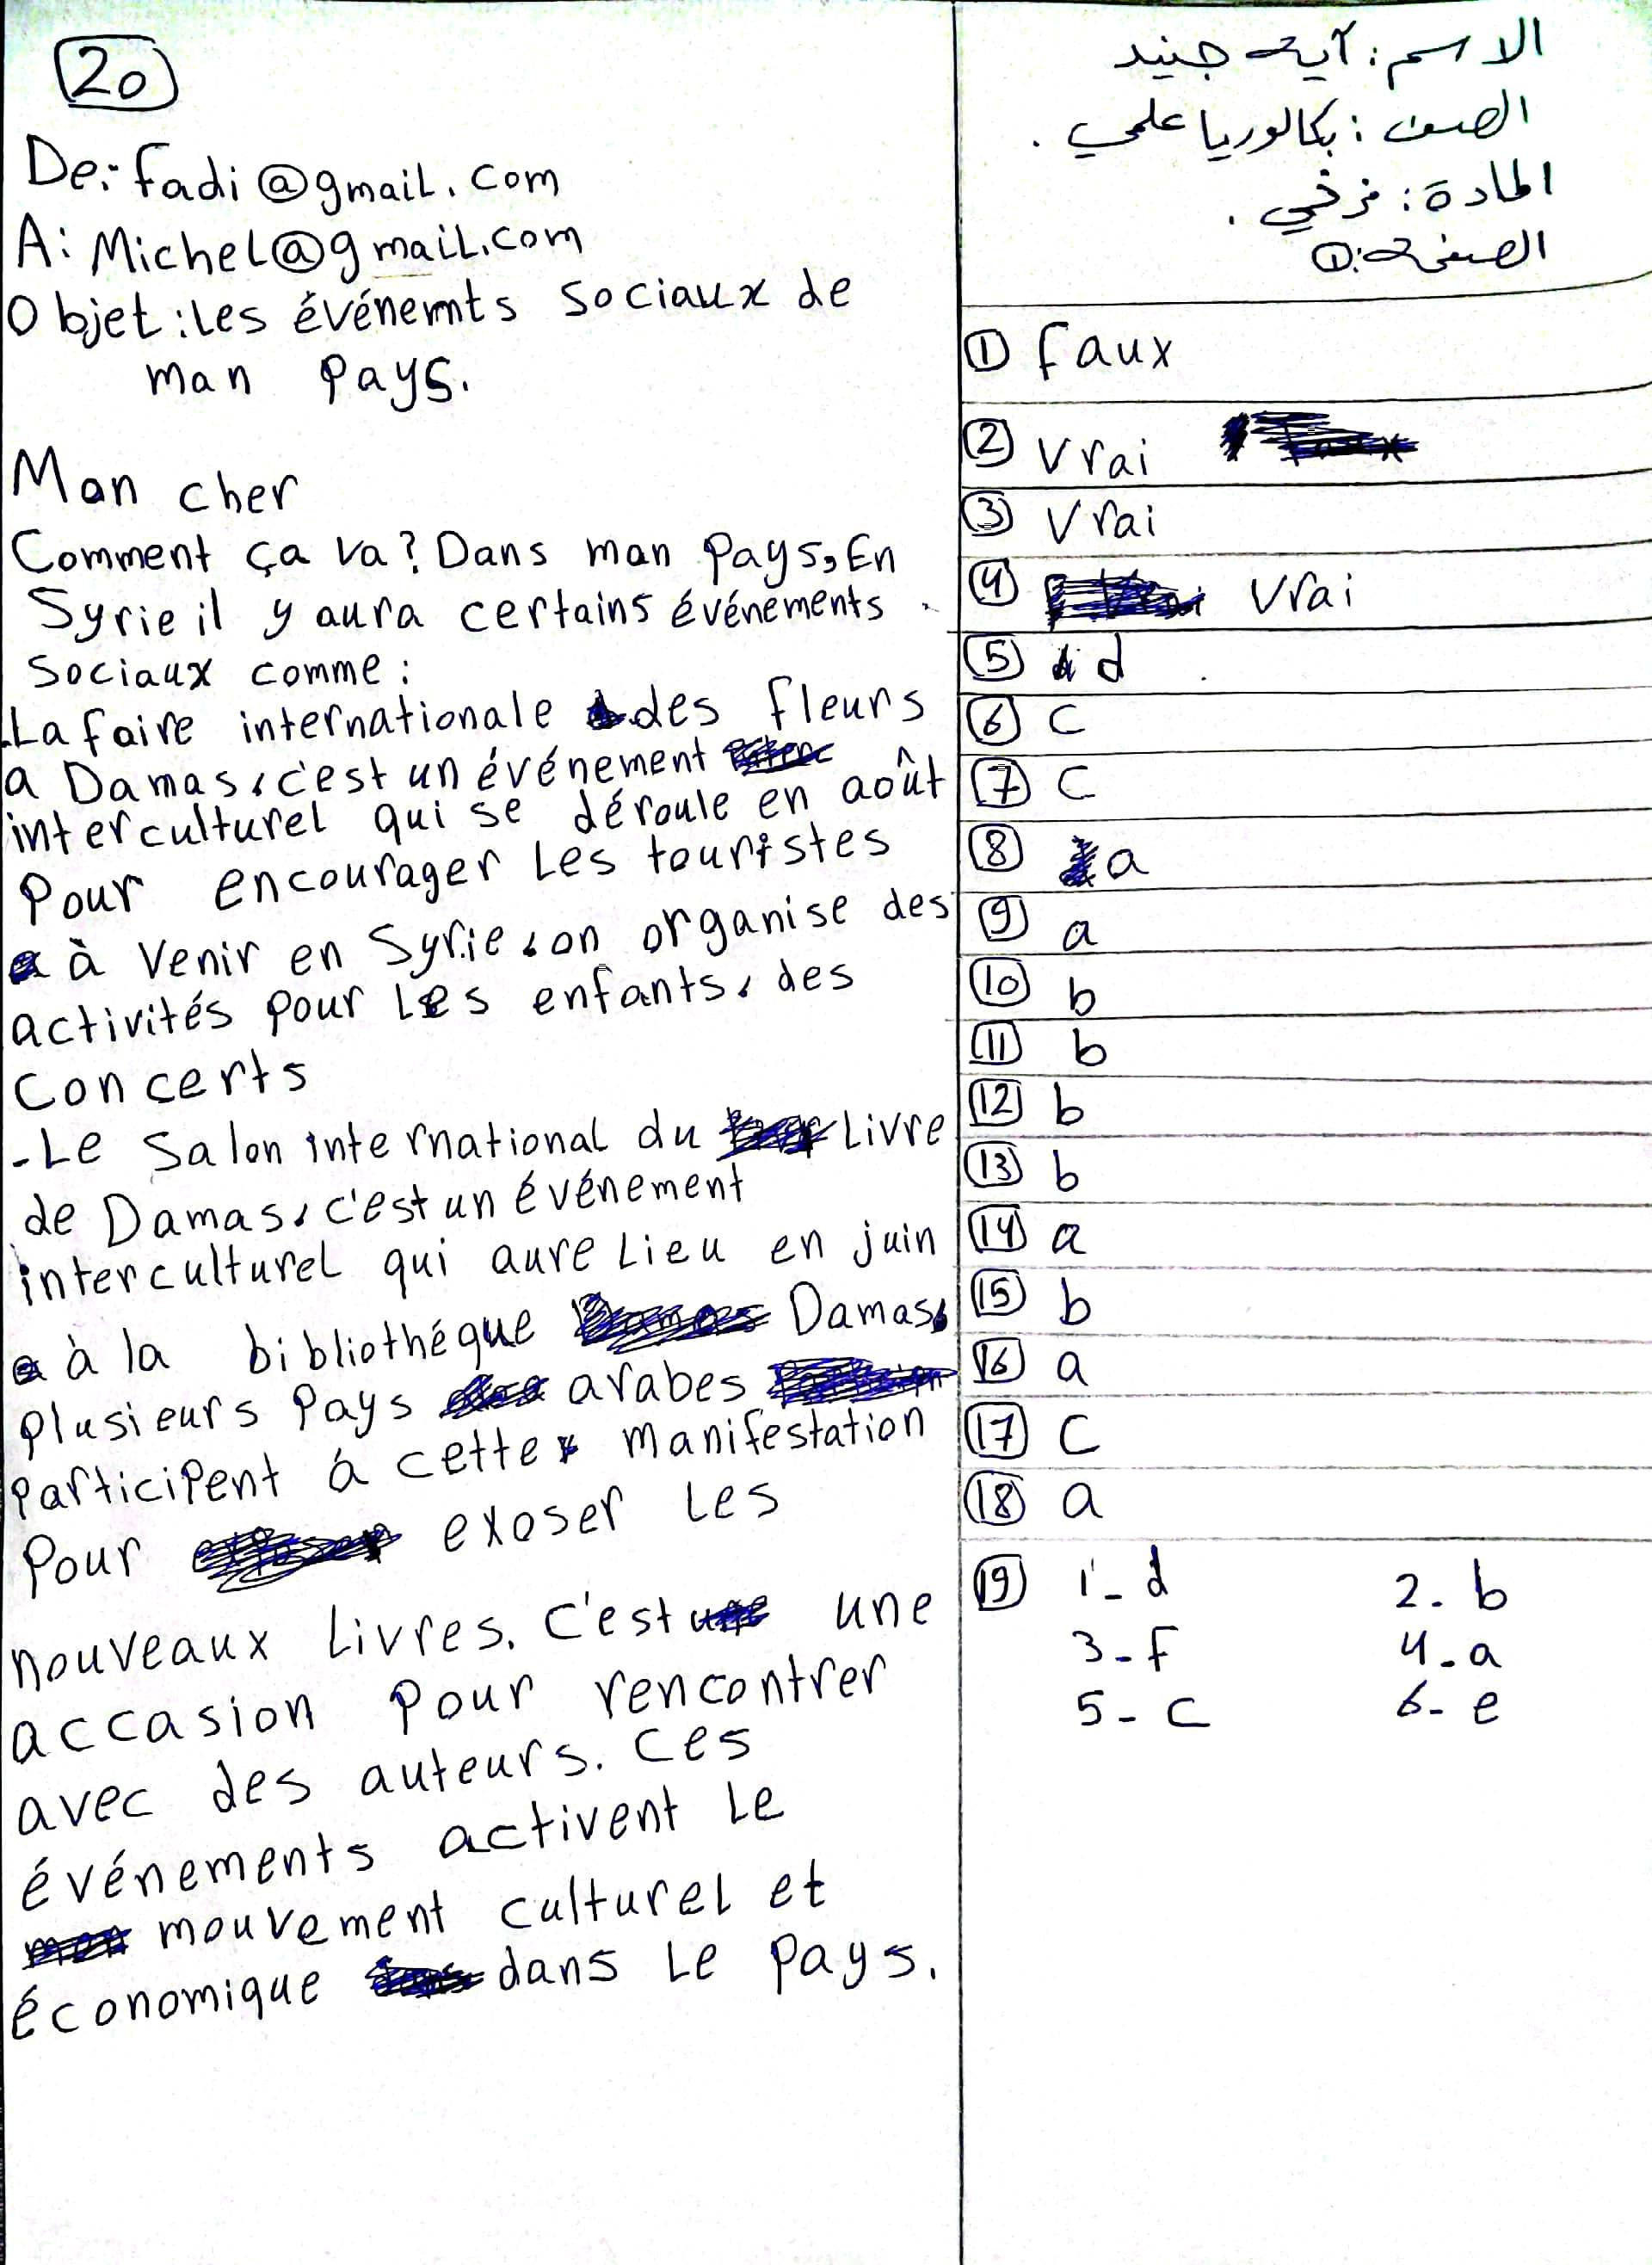 الاسم: آية جنيد
الصف: بكالوريا علمي.
المادة: فرنسي.
الصفحة: ①
① faux
② vrai
③ vrai
④ vrai
⑤ d
⑥ c
⑦ c
⑧ a
⑨ a
⑩ b
⑪ b
⑫ b
⑬ b
⑭ a
⑮ b
⑯ a
⑰ c
⑱ a
⑲ 1- d 2- b
3- f 4- a
5- c 6- e
20
De: fadi@gmail.com
A: Michel@gmail.com
Objet: Les événemts sociaux de
man pays.
Mon cher
Comment ça va? Dans man pays, En
Syrie il y aura certains événements
sociaux comme:
-La faire internationale des fleurs
a Damas, c'est un événement
interculturel qui se déroule en août
Pour encourager Les touristes
à venir en Syrie, on organise des
activités pour Les enfants, des
concerts
-Le Salon international du Livre
de Damas, c'est un événement
interculturel qui aure Lieu en juin
à la bibliothéque Damas,
plusieurs Pays arabes
participent á cette manifestation
Pour exoser Les
nouveaux Livres. C'est une
accasion Pour rencontrer
avec des auteurs. Ces
événements activent Le
mouvement culturel et
économique dans Le Pays.